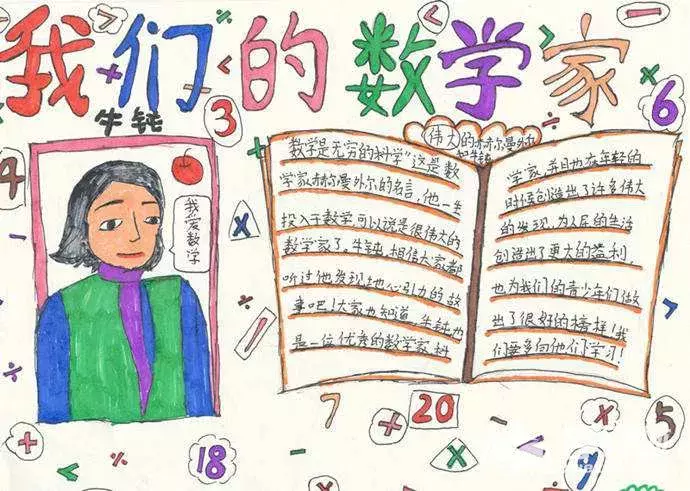 我们的数学家
牛钝
3
6
4
我爱数学
伟大的赫尔曼外尔
和牛钝
数学是无穷的科学"这是数
学家赫尔曼外尔的名言,他一生
投入于数学可以说是很伟大的
数学家了。牛钝,相信大家都
听过他发现地心引力的故
事吧!大家也知道,牛钝也
是一位优秀的数学家,科
学家,并且也在年轻的
时候创造出了许多伟大
的发现,为人民的生活
创造出了更大的益利,
也为我们的青少年们做
出了很好的榜样!我
们要多向他们学习!
7
20
5
18
9